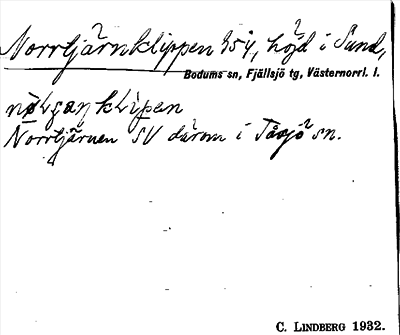 Norrtjärnklippen 354, höjd i Sund,
Bodums sn, Fjällsjö tg, Västernorrl. l.
Norrtjärnen SV därom i Tåsjö sn.
C. LINDBERG 1932.